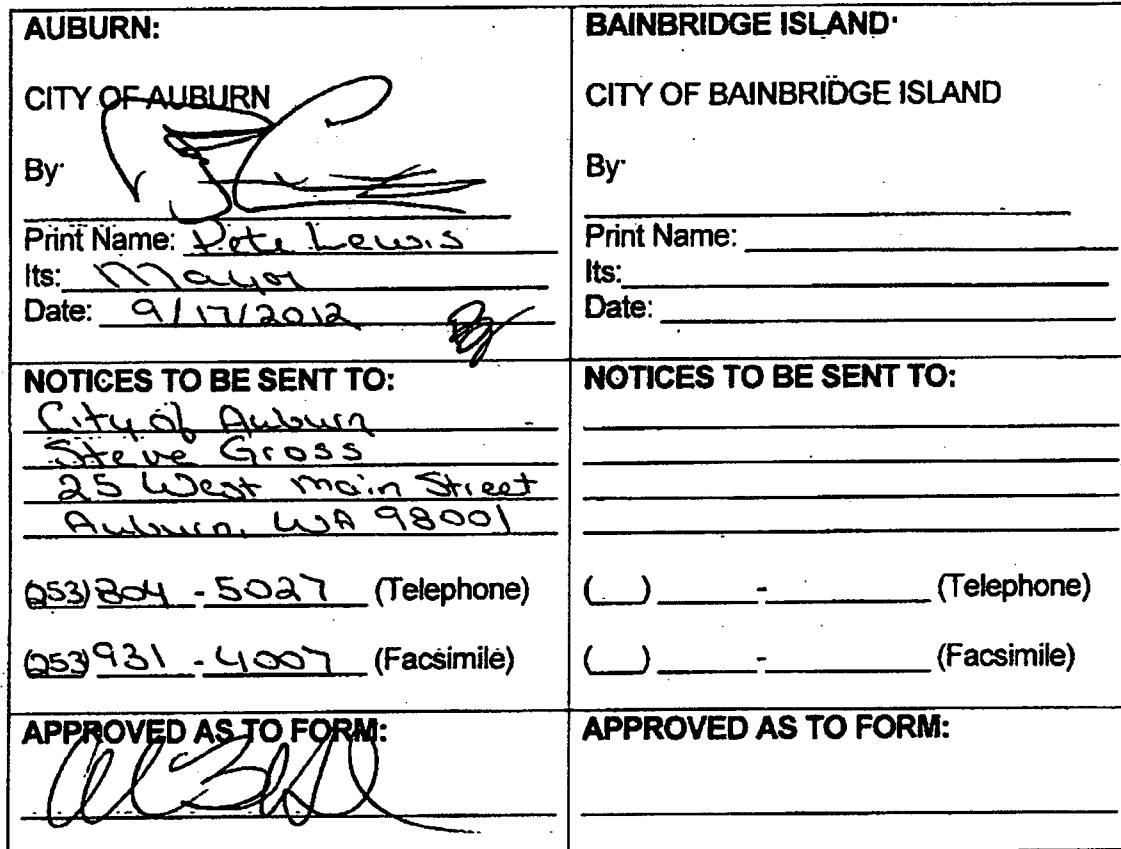 AUBURN:
CITY OF AUBURN
By
Print Name: Pete Lewis
Its: Mayor
Date: 9/17/2012
NOTICES TO BE SENT TO:
City of Auburn
Steve Gross
25 West Main Street
Auburn, WA 98001
(253) 804 - 5027 (Telephone)
(253) 931 - 4007 (Facsimile)
APPROVED AS TO FORM:
BAINBRIDGE ISLAND
CITY OF BAINBRIDGE ISLAND
By
Print Name:
Its:
Date:
NOTICES TO BE SENT TO:
( ) - (Telephone)
( ) - (Facsimile)
APPROVED AS TO FORM: